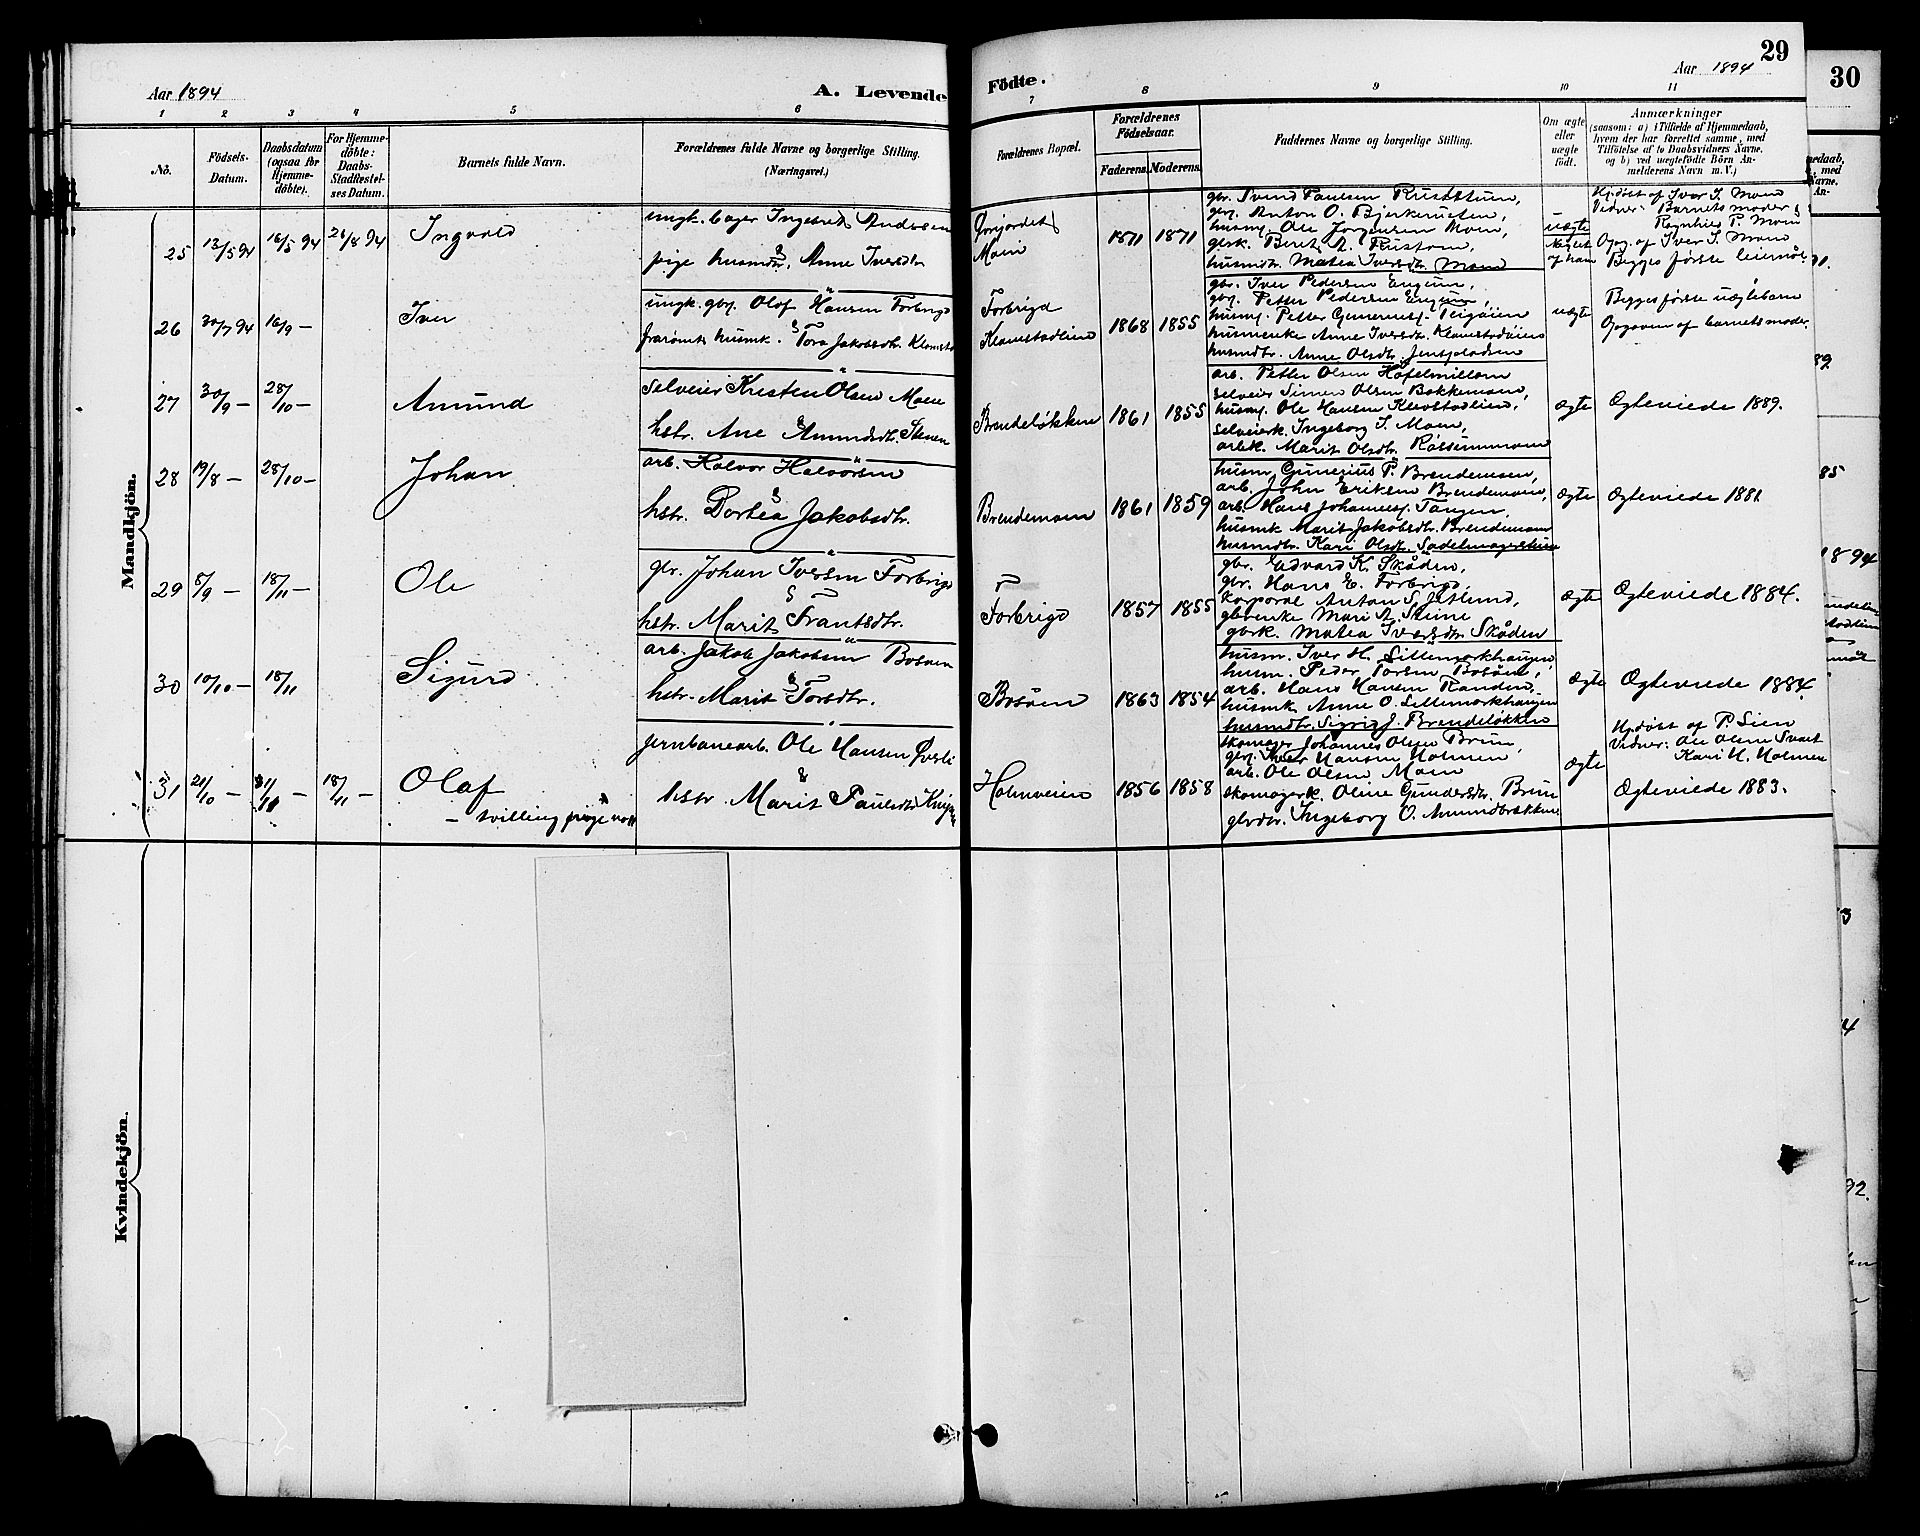 Aar 1894
A. Levende
Födte.
Aar 1894
29
30
1 2 3 4 5 6 7 8 9 10 11
No.
Födsels-
Datum.
Daabsdatum
(ogsaa for
Hjemme-
döbte).
For Hjemme-
döbte:
Daabs-
Stadfæstel-
ses Datum.
Barnets fulde Navn.
Forældrenes fulde Navne og borgerlige Stilling.
(Næringsvei.)
Forældrenes Bopæl.
Forældrenes
Födselsaar.
Faderens. Moderens.
Faddernes Navne og borgerlige Stilling.
Om ægte
eller
uægte
födt.
Anmærkninger
(saasom: a) i Tilfælde af Hjemmedaab,
hvem der har forrettet samme, med
Tilföielse af to Daabsvidners Navne,
og b) ved uægtefödte Börn An-
melderens Navn m. V.)
Mandkjön.
25 13/5 94 16/5 94 26/8 94 Ingvald
ungk. bager Ingebret Andersen
&
pige husmdtr. Anne Iversdtr.
Moen
1871 1871
gbr. Svend Paulsen Ruststuen,
gbf. Anton O. Bjerkenesten,
husmf. Ole Jørgensen Moen,
gbrk. Berit A. Rustom,
husmdtr. Matea Iversdtr. Moen
uægte
Hj.döbt af Iver I. Moen
Vidner: Barnets moder &
Ragnhild P. Moen
Opg. af Iver I. Moen
Begges første leiermål
26 30/7 94 16/9 - Iver
ungk. gbf. Olof Hansen Forbrigd
&
husmk. Tora Jakobsdtr. Klomstad
Forbrigd
Klomstadlien
1868 1855
gbr. Iver Pedersen Engum,
gbf. Petter Pedersen Engum,
husmf. Petter Gunerusf. Teigøien
husmenke Anne Iversdtr. Klomstadøiens
husmdtr. Anne Olsdtr. Jenspladsen
uægte
Begges første uægtebarn
Opgaven af barnets moder
27 30/9 - 28/10 - Amund
selveier Kristen Olsen Moen
&
hstr. Ane Amundsdtr. Steen
Brendeløkken
1861 1855
arb. Petter Olsen Hofelmillom
selveier Simen Olsen Bakkemoen,
husmf. Ole Hansen Klevstadlien,
selveierk. Ingeborg I. Moen,
arbk. Marit Olsdtr. Rolsummoen
ægte
Ægteviede 1889.
28 19/8 - 28/10 - Johan
arb. Halvor Halvorsen
&
hstr. Dortea Jakobsdtr.
Brendemoen
1861 1859
husm. Gunerius P. Brendemoen,
arb. John Eriksen Brendemoen,
arb. Hans Johannesf. Tangen,
husmk Marit Jakobsdtr. Brendemoen
husmdtr. Kari Olsdtr. Sadelmagerstuen
ægte
Ægteviede 1881.
29 8/9 - 18/11 - Ole
gbr. Johan Iversen Forbrigd
&
hstr. Marit Frantsdtr.
Forbrigd
1857 1855
gbr. Edvard K. Skåden,
gbr. Hans E. Forbrigd,
korporal Anton S. Jetlund,
gbrenke Mari A. Steine
gbrk. Matea Iversdtr. Skåden
ægte
Ægteviede 1884.
30 10/10 - 18/11 Sigurd
arb. Jakob Jakobsen Bosøen
&
hstr. Marit Torsdtr.
Bosøen
1863 1854
husm. Iver H. Sillemorkhaugen,
husm. Peder Torsen Bosøen,
arb. Hans Hansen Randen,
husmk Anne O. Sillemorkhaugen
husmdtr. Sigrid J. Brendeløkken
ægte
Ægteviede 1884.
31 21/10 - 18/11 - Olaf
- tvilling pige
jernbanearb. Ole Hansen Øverli
&
hstr. Marit Paulsdtr.
Holmveien
1856 1858
skomager Johannes Olsen Brun,
gbf. Iver Hansen Holmen
arb. Ole Olsen Moen
skomagerk. Oline Gundersdtr. Brun
gbrdtr. Ingeborg O. Amundbakken
ægte
Hj.døbt af P. Lien
Vidner: Ole Olsen Svart
Kari H. Holmen
Ægteviede 1883.
Kvindekjön.